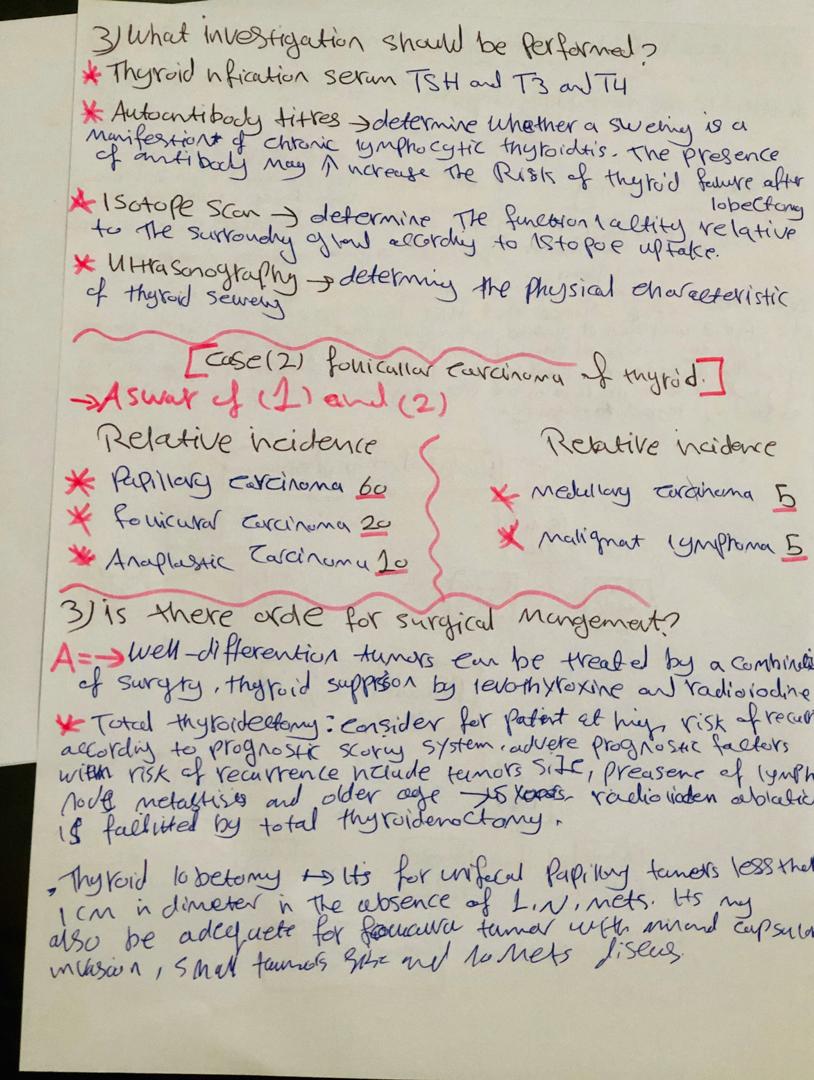 3) What investigation should be performed?
* Thyroid nfication serum TSH and T3 and T4
* Autoantibody titres → determine whether a sweing is a
Manifestiont of chronic lymphocytic thyroidtis. The presence
of antibody may ↑ ncrease The Risk of thyroid failure after
lobectomy
* Isotope scan → determine The functional altity relative
to The surroundy gland accordiy to Istopoe uptake.
* Ultrasonography → determing the physical characteristic
of thyroid sewery
[case(2) follicullar carcinoma of thyroid.]
→ Aswar of (1) and (2)
Relative incidence
* Papillary carcinoma 60
* follicural carcinoma 20
* Anaplastic Carcinoma 10
Relative incidence
* Medullary carcinoma 5
* Malignat lymphoma 5
3) is there arole for surgical Mangement?
A=→ Well-differention tumors can be treated by a combinati
of surgry, thyroid supprsion by levothyroxine and radioiodine
* Total thyroidectomy: consider for patient at high risk of recur
accordiy to prognostic scory system. advere prognostic factors
with risk of recurrence nclude tumors size, preasene of lymph
node metastises and older age → radioiioden ablatio
is fallited by total thyroidenoctomy.
, Thyroid lobetomy ↔ Its for unifocal Papillary tumers less than
1 CM in dimeter in the absence of L.N. mets. Its my
also be adequete for tumor with minand capsular
invasion, small tumors size and no Mets diseus.